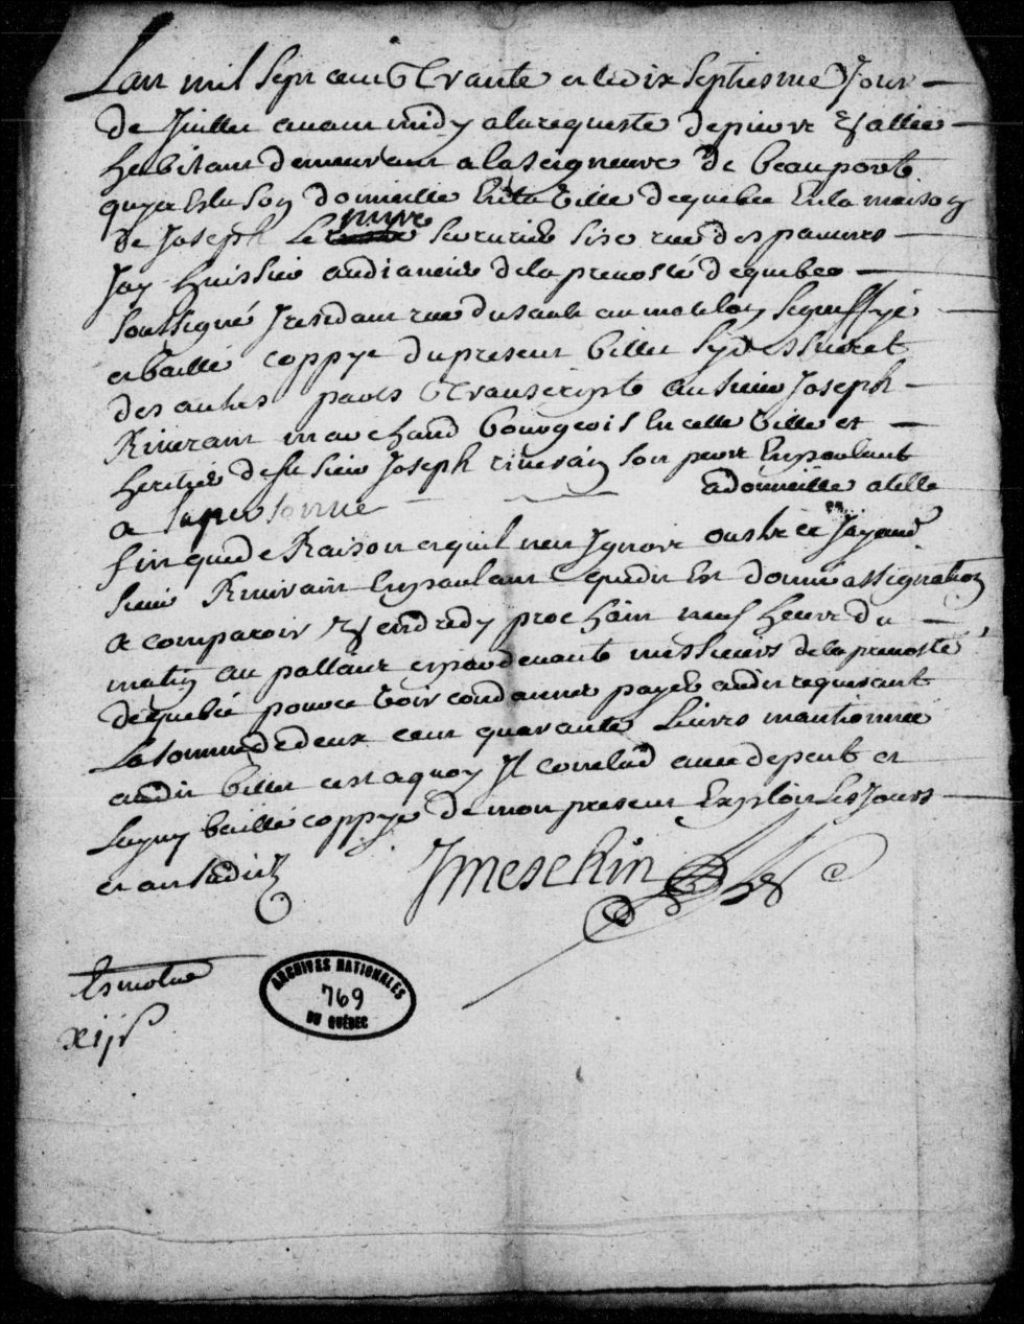 Lan mil Sept cent Trante et le dix Septiesme Jour
de Juillet avant midy a la requeste de pierre Vallée
habitant demeurant a la Seigneure de beauport
quy a Eslu Son domicille En la Ville de quebec En la maison
de Joseph Le mire Serurier Sise rue des pauvres
Jay huissier audiancier de la prevosté de quebec
Soussigné Residant rue du Sault au matelot Signiffyé
et baillé coppye du present billet Sy dessus et
des autres parts Transcripts au Sieur Joseph
Riverain marchand bourgeois En cette Ville et
heritier de feu Sieur Joseph riverain Son pere En parlant
a Sa personne a domicille a telle
fin que de Raison et quil nen Ignore oustre ce Jay aud
Sieur Riverain En parlant que dit Est donné assignation
a comparoir Vendredy prochain neuf heure du
matin au pallais et pardevant messieurs de la prevosté
de quebec pour ce Voir condamner payer audit requerant
La Somme de deux cent quarante Livres mantionnée
audit billet cest a quoy Il conclud avec depent et
Luy baillé coppye de mon present Exploit Les Jours
et an Susdit
JMeschin
xijs
ARCHIVES NATIONALES
769
DU QUÉBEC